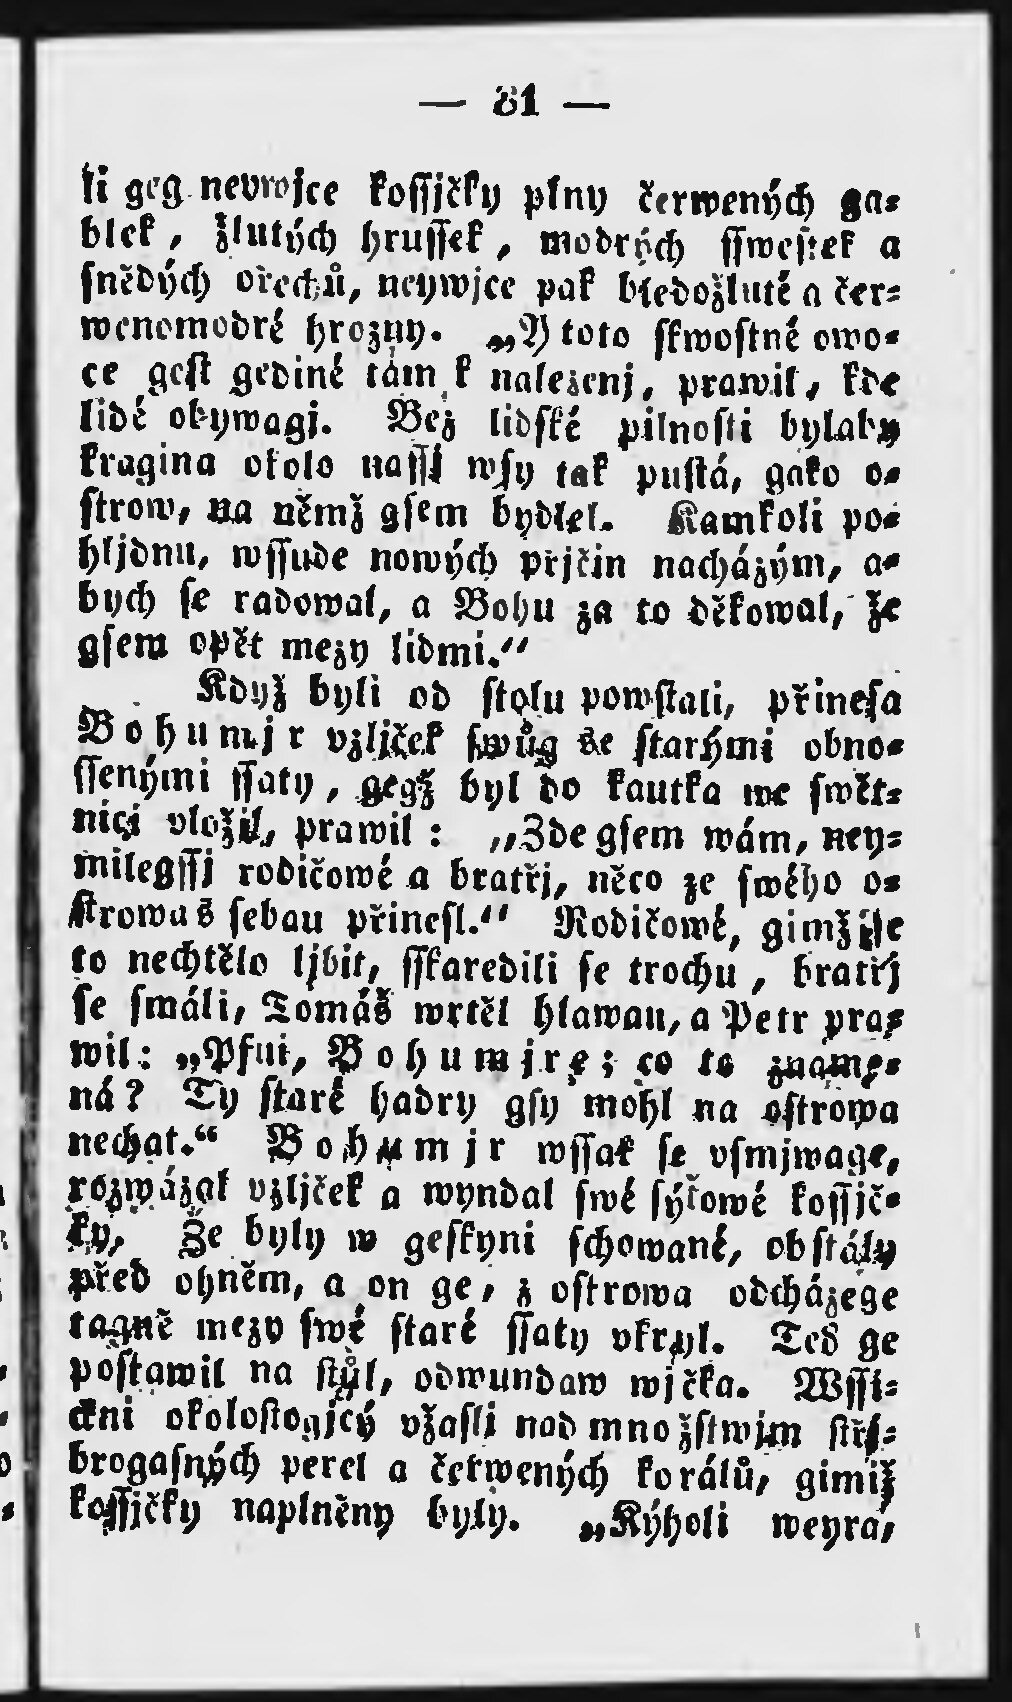 — 81 —
li geg neywjce koſſjčky plny čerwených ga-
blek, žlutých hruſſek, modrých ſſweſtek a
ſnědých ořechů, neywjce pak bledožluté a čer-
wenomodré hrozny. „Y toto ſkwoſtné owo-
ce geſt gediné tam k nalezenj, prawil, kde
lidé obywagj. Bez lidſké pilnoſti bylaby
kragina okolo naſſj wſy tak puſtá, gako o-
ſtrow, na němž gſem bydlel. Kamkoli po-
hljdnu, wſſude nowých přjčin nacházým, a-
bych ſe radowal, a Bohu za to děkowal, že
gſem opět mezy lidmi.“
Když byli od ſtolu powſtali, přineſa
Bohumjr vzljček ſwůg ſe ſtarými obno-
ſſenými ſſaty, gegž byl do kautka we ſwět-
nici vložil, prawil: „Zde gſem wám, ney-
milegſſj rodičowé a bratřj, něco ze ſwého o-
ſtrowa ſebau přineſl.“ Rodičowé, gimž ſe
to nechtělo ljbit, ſſkaredili ſe trochu, bratřj
ſe ſmáli, Tomáš wrtěl hlawau, a Petr pra-
wil: „Pfui, Bohumjre; co to zname-
ná? Ty ſtaré hadry gſy mohl na oſtrowa
nechat.“ Bohumjr wſſak ſe vſmjwage,
rozwázal vzljček a wyndal ſwé ſýťowé koſſjč-
ky. Že byly w geſkyni ſchowané, obſtály
před ohněm, a on ge, z oſtrowa odcházege
tagně mezy ſwé ſtaré ſſaty vkryl. Teď ge
poſtawil na ſtůl, odwundaw wjčka. Wſſi-
ckni okoloſtogjcý vžaſli nad množſtwjm ſtřj-
brogaſných perel a čerwených korálů, gimiž
koſſjčky naplněny byly. „Kýholi weyra,